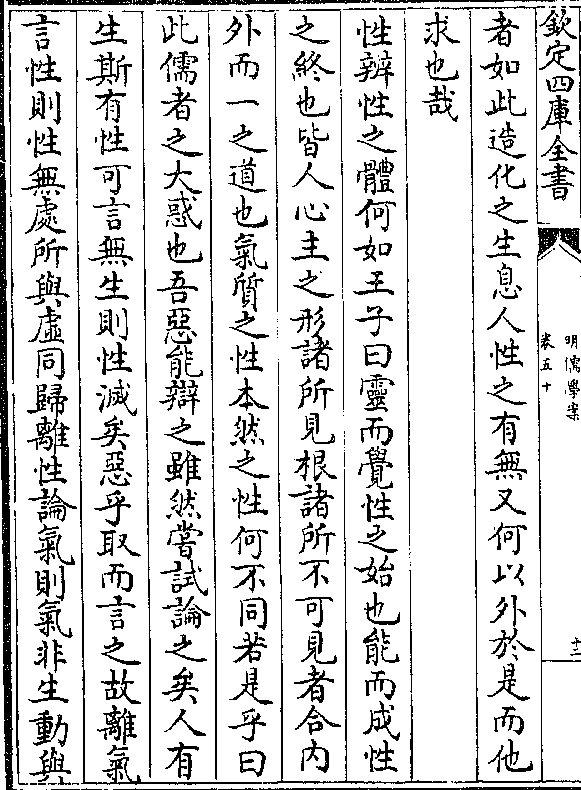 欽定四庫全書
明儒學案
卷五十
十二
者如此造化之生息人性之有無又何以外於是而他
求也哉
性辨性之體何如王子曰靈而覺性之始也能而成性
之終也皆人心主之形諸所見根諸所不可見者合內
外而一之道也氣質之性本然之性何不同若是乎曰
此儒者之大惑也吾惡能辯之雖然嘗試論之矣人有
生斯有性可言無生則性滅矣惡乎取而言之故離氣
言性則性無處所與虛同歸離性論氣則氣非生動與